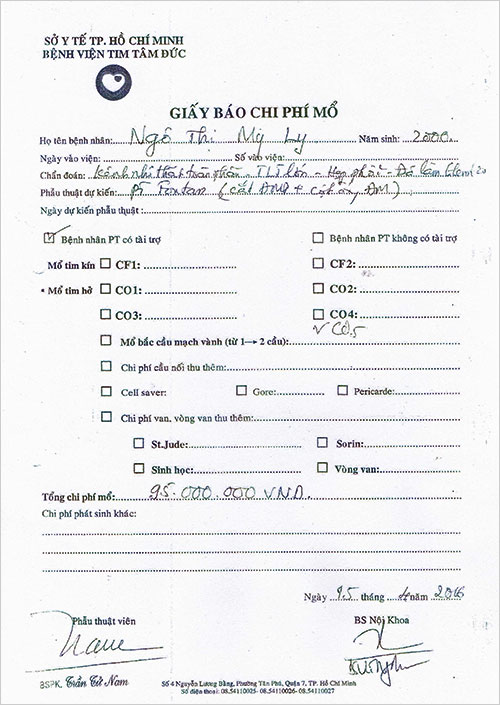 SỞ Y TẾ TP. HỒ CHÍ MINH
BỆNH VIỆN TIM TÂM ĐỨC
GIẤY BÁO CHI PHÍ MỔ
Họ tên bệnh nhân: Ngô Thị Mỹ Ly Năm sinh: 2000
Ngày vào viện: Số vào viện:
Chẩn đoán: - TLT lớn - Hẹp phổi - Đã làm Glenn
Phẫu thuật dự kiến: PT Fontan (cắt ĐMP +
Ngày dự kiến phẫu thuật:
Bệnh nhân PT có tài trợ Bệnh nhân PT không có tài trợ
Mổ tim kín CF1: CF2:
• Mổ tim hở CO1: CO2:
CO3: CO4:
v CO5
Mổ bắc cầu mạch vành (từ 1→ 2 cầu):
Chi phí cầu nối thu thêm:
Cell saver: Gore: Pericarde:
Chi phí van, vòng van thu thêm:
St.Jude: Sorin:
Sinh học: Vòng van:
Tổng chi phí mổ: 95.000.000 VNĐ
Chi phí phát sinh khác:
Ngày 15 tháng 4 năm 2016
Phẫu thuật viên BS Nội Khoa
BSPK. Trần Tử Nam
Số 4 Nguyễn Lương Bằng, Phường Tân Phú, Quận 7, TP. Hồ Chí Minh
Số điện thoại: 08.54110025- 08.54110026- 08.54110027